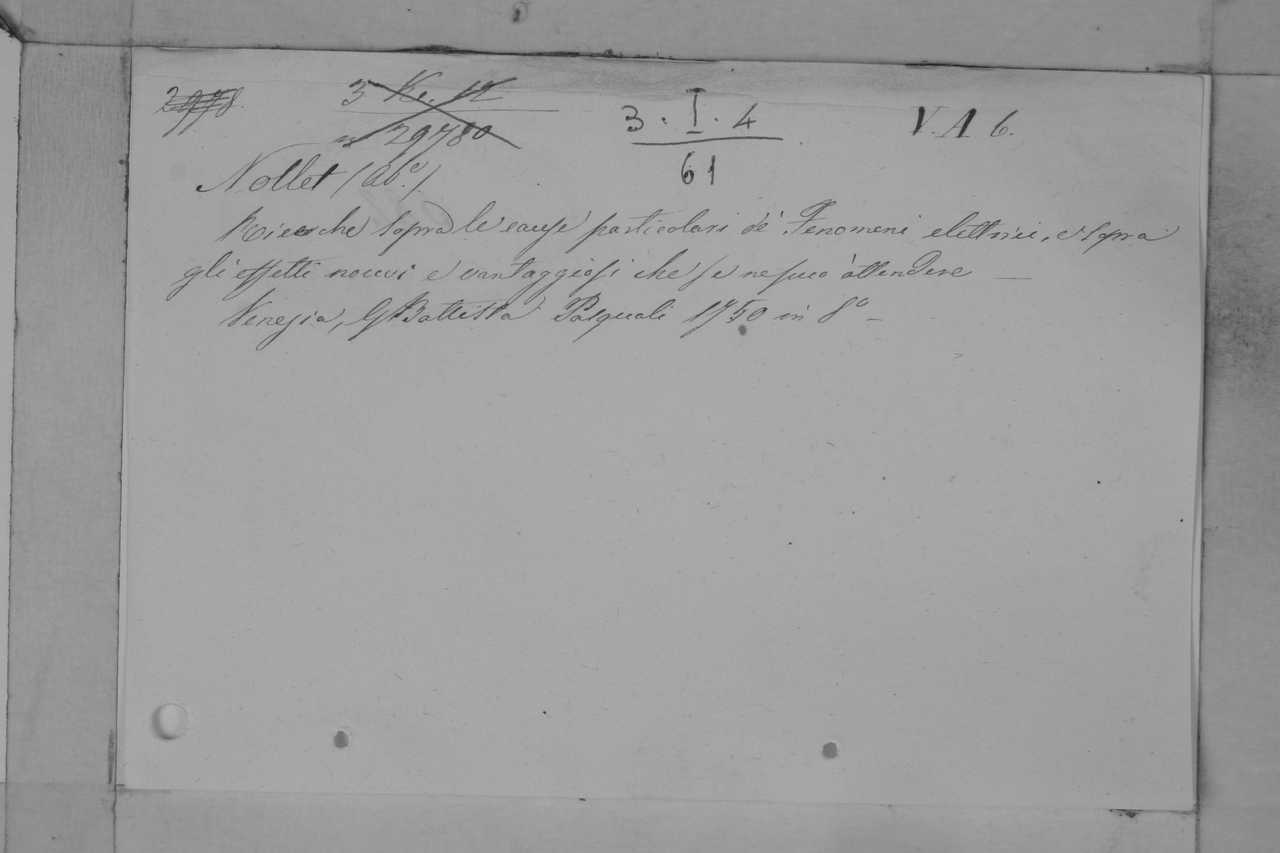 3 · I · 4
61
V. A 6.
Nollet (Ab.e)
Ricerche sopra le cause particolari de' Fenomeni elettrici, e sopra
gli effetti nocivi e vantaggiosi che se ne puo attendere —
Venezia, G Battista Pasquali 1750 in 8o —